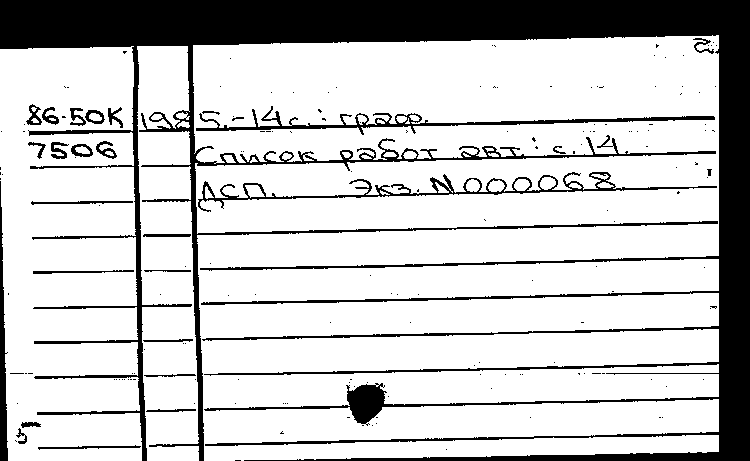 2.
86-50К 1985.-14с.: граф.
7506 Список работ авт.: с. 14.
ДСП. Экз. N000068.
5